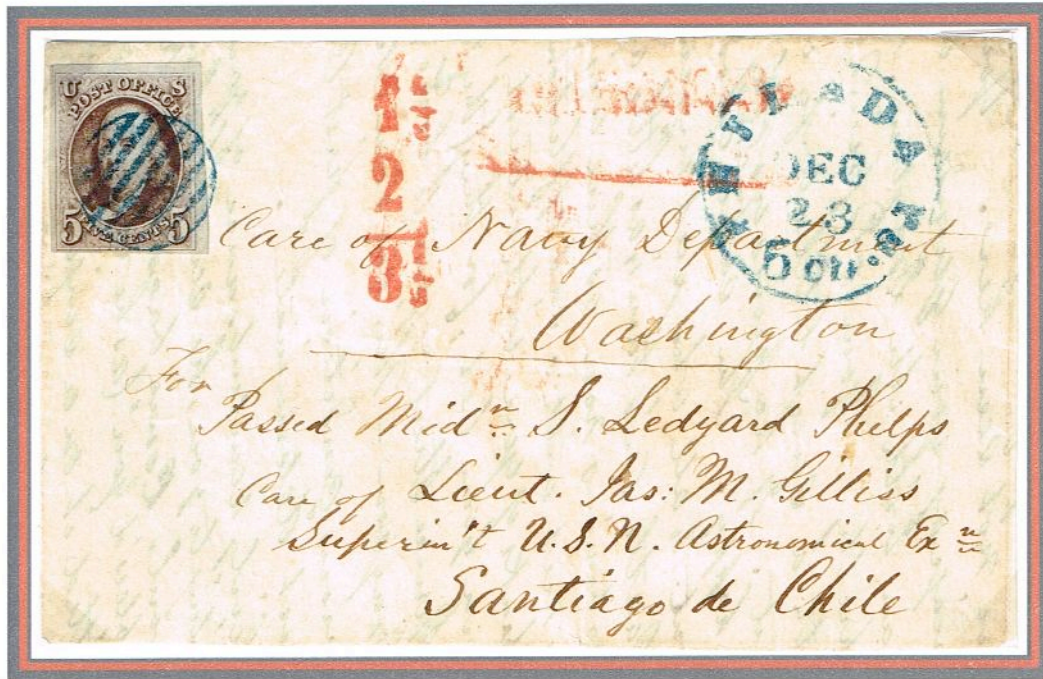 U S
POST OFFICE
5 FIVE CENTS 5
1½
2
3½
PHILADA Pa.
DEC
23
5 cts.
Care of Navy Department
Washington
For
Passed Midn S. Ledyard Phelps
Care of Lieut. Jas: M. Gilliss
Superin't U.S.N. Astronomical Exn
Santiago de Chile